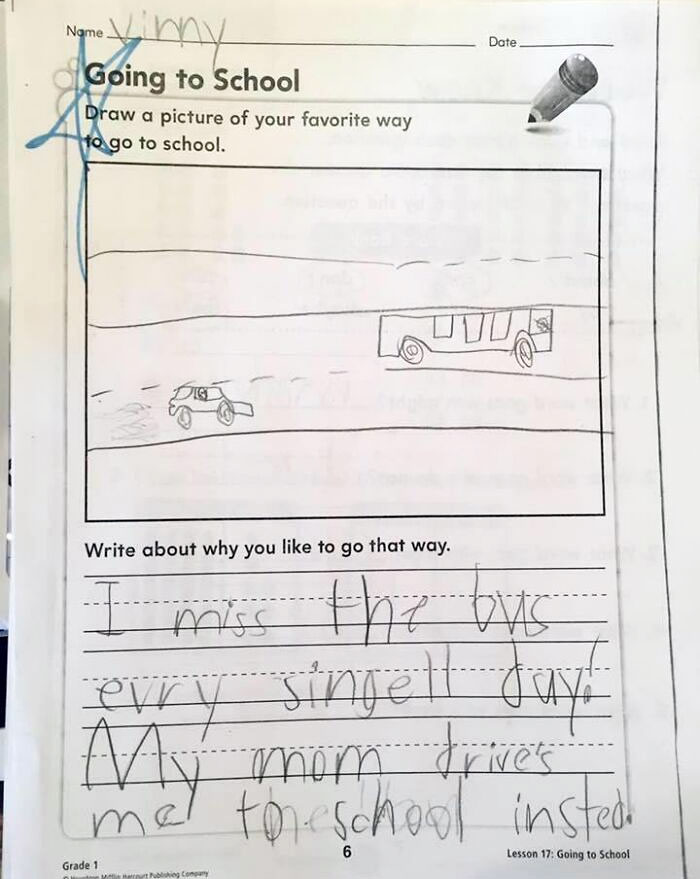 Name Vinny Date
Going to School
Draw a picture of your favorite way
to go to school.
Write about why you like to go that way.
I miss the bus
evry singell day!
My mom drive's
me to school insted.
6
Grade 1
Lesson 17: Going to School
© Houghton Mifflin Harcourt Publishing Company